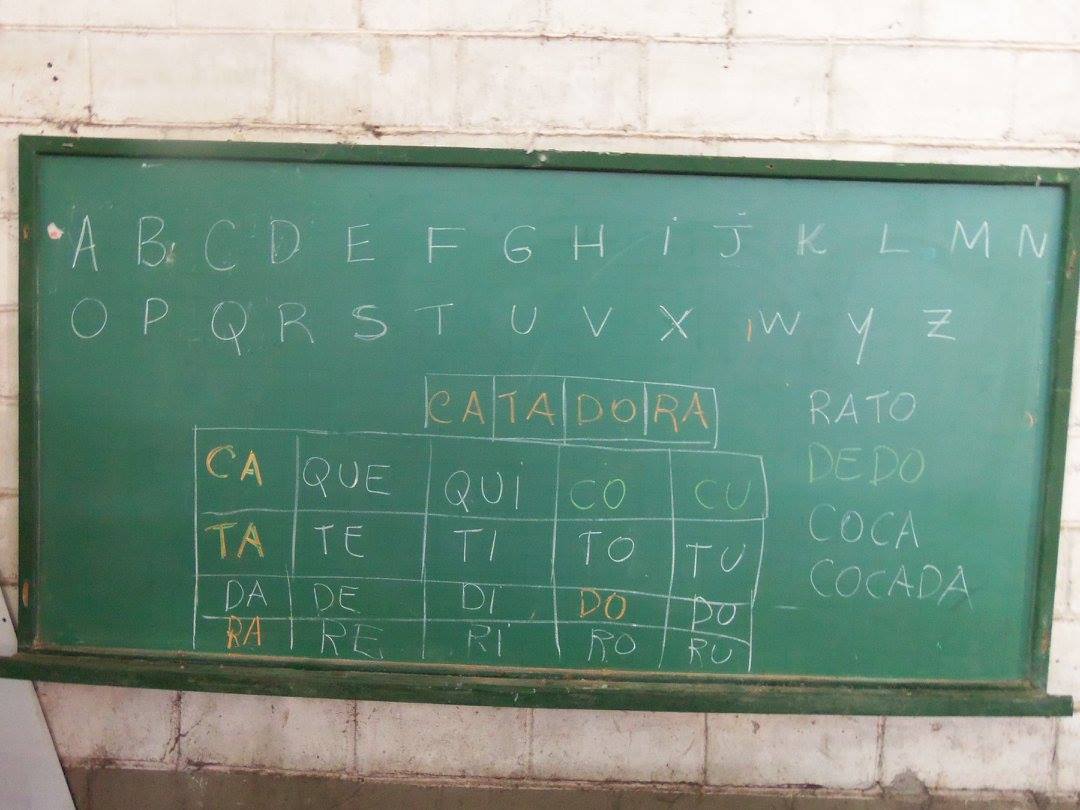 A B C D E F G H i J K L M N
O P Q R S T U V X W Y Z
CA TA DO RA
CA QUE QUi CO CU
TA TE TI TO TU
DA DE Di DO DU
RA RE Ri RO RU
RATO
DEDO
COCA
COCADA